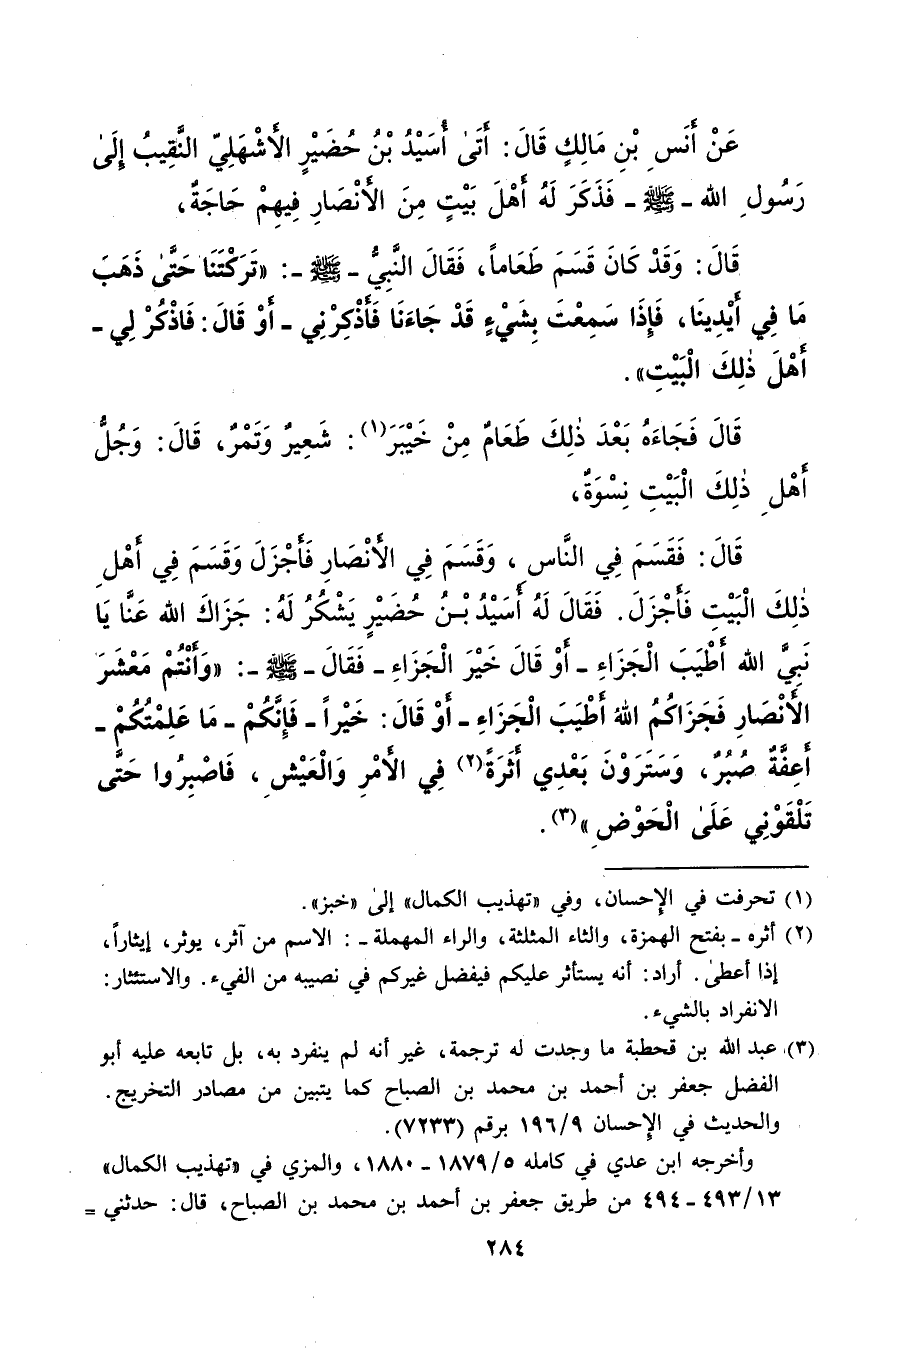 عَنْ أَنَسِ بْنِ مَالِكٍ قَالَ: أَتَىٰ أُسَيْدُ بْنُ حُضَيْرٍ الأَشْهَلِيّ النَّقِيبُ إِلَىٰ
رَسُولِ الله ـ ﷺ ـ فَذَكَرَ لَهُ أَهْلَ بَيْتٍ مِنَ الأَنْصَارِ فِيهِمْ حَاجَةٌ،
قَالَ: وَقَدْ كَانَ قَسَمَ طَعَاماً، فَقَالَ النَّبِيُّ ـ ﷺ ـ: «تَرَكْتَنَا حَتَّىٰ ذَهَبَ
مَا فِي أَيْدِينَا، فَإِذَا سَمِعْتَ بِشَيْءٍ قَدْ جَاءَنَا فَأَذْكِرْنِي ـ أَوْ قَالَ: فَاذْكُرْ لِي ـ
أَهْلَ ذٰلِكَ الْبَيْتِ».
قَالَ فَجَاءَهُ بَعْدَ ذٰلِكَ طَعَامٌ مِنْ خَيْبَرَ(١): شَعِيرٌ وَتَمْرٌ، قَالَ: وَجُلُّ
أَهْلِ ذٰلِكَ الْبَيْتِ نِسْوَةٌ،
قَالَ: فَقَسَمَ فِي النَّاسِ، وَقَسَمَ فِي الأَنْصَارِ فَأَجْزَلَ وَقَسَمَ فِي أَهْلِ
ذٰلِكَ الْبَيْتِ فَأَجْزَلَ. فَقَالَ لَهُ أُسَيْدُ بْنُ حُضَيْرٍ يَشْكُرُ لَهُ: جَزَاكَ الله عَنَّا يَا
نَبِيَّ الله أَطْيَبَ الْجَزَاءِ ـ أَوْ قَالَ خَيْرَ الْجَزَاءِ ـ فَقَالَ ـ ﷺ ـ: «وَأَنْتُمْ مَعْشَرَ
الأَنْصَارِ فَجَزَاكُمُ اللهُ أَطْيَبَ الْجَزَاءِ ـ أَوْ قَالَ: خَيْراً ـ فَإِنَّكُمْ ـ مَا عَلِمْتُكُمْ ـ
أَعِفَّةٌ صُبُرٌ، وَسَتَرَوْنَ بَعْدِي أَثَرَةً(٢) فِي الأَمْرِ وَالْعَيْشِ، فَاصْبِرُوا حَتَّى
تَلْقَوْنِي عَلَىٰ الْحَوْضِ»(٣).
(١) تحرفت في الإحسان، وفي «تهذيب الكمال» إلىٰ «خبز».
(٢) أثره ـ بفتح الهمزة، والثاء المثلثة، والراء المهملة ـ: الاسم من آثر، يوثر، إيثاراً،
إذا أعطىٰ. أراد: أنه يستأثر عليكم فيفضل غيركم في نصيبه من الفيء. والاستئثار:
الانفراد بالشيء.
(٣) عبد الله بن قحطبة ما وجدت له ترجمة، غير أنه لم ينفرد به، بل تابعه عليه أبو
الفضل جعفر بن أحمد بن محمد بن الصباح كما يتبين من مصادر التخريج.
والحديث في الإحسان ١٩٦/٩ برقم (٧٢٣٣).
وأخرجه ابن عدي في كامله ١٨٧٩/٥ ـ ١٨٨٠، والمزي في «تهذيب الكمال»
٤٩٣/١٣ ـ ٤٩٤ من طريق جعفر بن أحمد بن محمد بن الصباح، قال: حدثني =
٢٨٤